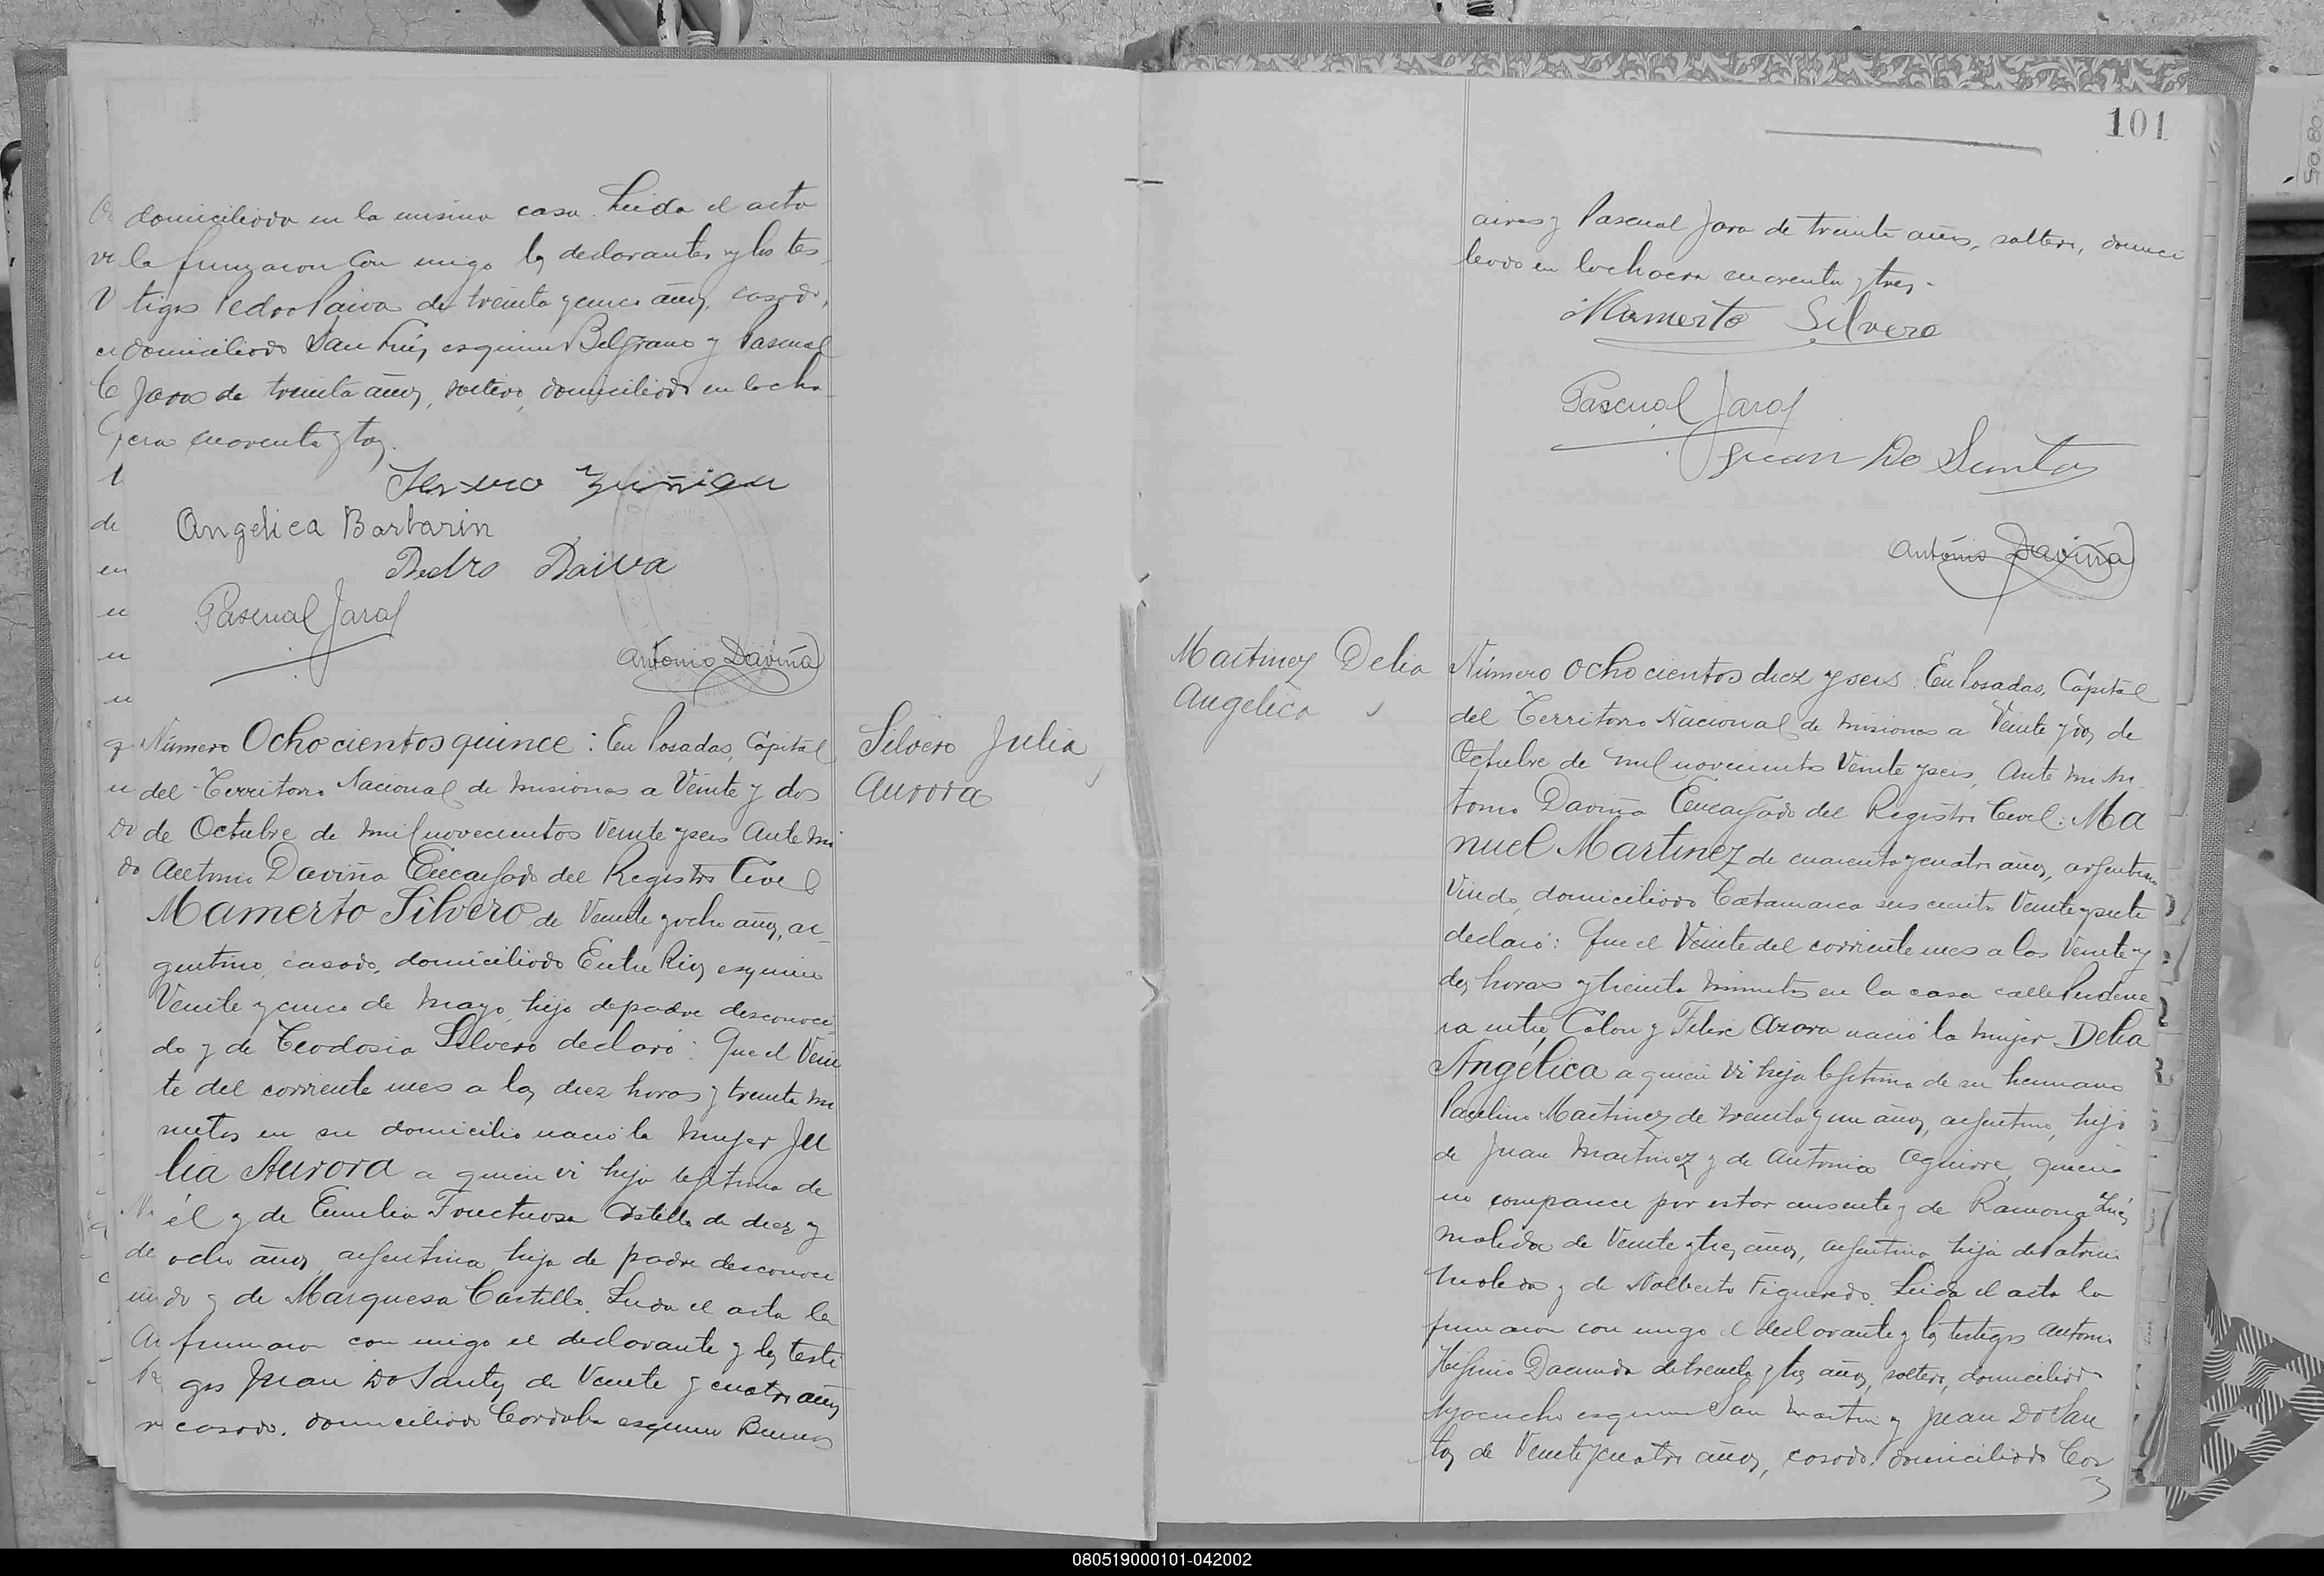 domiciliada en la misma casa. Leida el acta
la firmaron con migo los declarantes y los tes-
tigos Pedro Paiva de treinta y cinco años, casado,
domiciliado San Luis esquina Belgrano y Pascual
Jara de treinta años, soltero, domiciliado en la cha-
cra cuarenta y tres.
Zuñiga
Angelica Barbarin
Pedro Paiva
Pascual Jara
Antonio Daviña
Silvero Julia
Aurora
Número Ochocientos quince: En Posadas, Capital
del Territorio Nacional de Misiones a Veinte y dos
de Octubre de mil novecientos Veinte y seis Ante mi
Antonio Daviña Encargado del Registro Civil
Mamerto Silvero de Veinte y ocho años, ar-
gentino, casado, domiciliado Entre Rios esquina
Veinte y cinco de Mayo, hijo de padre desconoci-
do y de Teodosia Silvero declaró: Que el Vein
te del corriente mes a las diez horas y treinta mi
nutos en su domicilio nació la mujer Ju
lia Aurora a quien vi hija legitima de
él y de Emilia Fructuosa Castillo de diez y
ocho años, argentina hija de padre desconoci
do y de Marquesa Castillo. Leida el acta la
firmaron con migo el declarante y los testi
gos Juan Do Santos de Veinte y cuatro años
casado, domiciliado Cordoba esquina Buenos
101
aires y Pascual Jara de treinta años, soltero, domici
liado en la chacra cuarenta y tres.
Mamerto Silvero
Pascual Jara
Juan Do Santos
Antonio Daviña
Martinez Delia
Angelica
Número Ochocientos diez y seis. En Posadas, Capital
del Territorio Nacional de Misiones a Veinte y dos de
Octubre de mil novecientos Veinte y seis, Ante mi An
tonio Daviña Encargado del Registro Civil: Ma
nuel Martinez de cuarenta y cuatro años, argentino
Viudo, domiciliado Catamarca seiscientos Veinte y siete
declaró: Que el Veinte del corriente mes a las Veinte y
dos horas y treinta minutos en la casa calle Pederne
ra entre Colon y Felix Azara nació la mujer Delia
Angélica a quien vi hija legitima de su hermano
Paulino Martinez de treinta y un años, argentino, hijo
de Juan Martinez y de Antonia Aguirre, quien
no comparece por estar ausente y de Ramona Inés
Molida de Veinte y tres años, argentina hija de Patrici
Molida y de Nolberta Figueredo. Leida el acta la
firmaron con migo el declarante y los testigos Antoni
Higinio Dacunda de treinta y tres años, soltero, domiciliado
Ayacucho esquina San Martin y Juan Do San
tos de Veinte y cuatro años, casado, domiciliado Cor
080519000101-042002